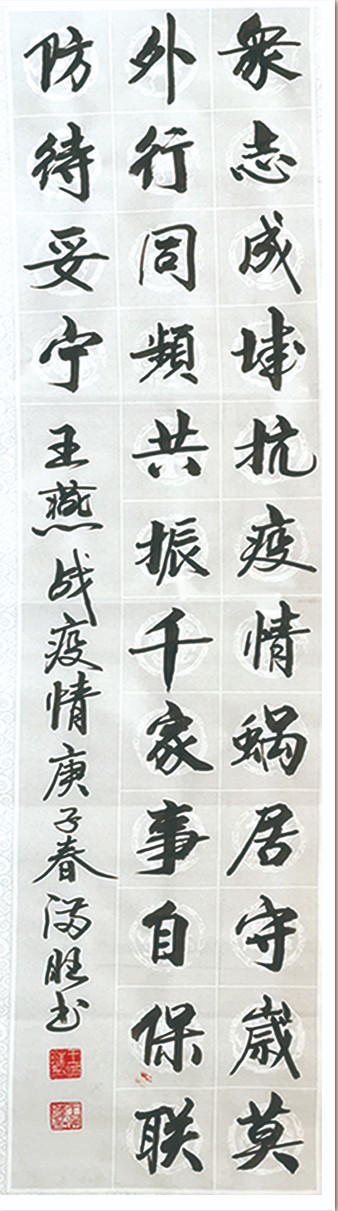 衆志成城抗疫情蝸居守嵗莫
外行同頻共振千家事自保联
防待妥宁
王燕战疫情庚子春满旺书